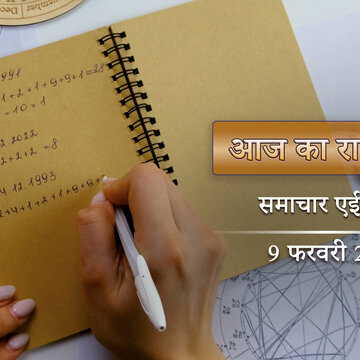 1991
1+2+1+9+9+1=28
=10=1
2 2022
2+2+2=8
4 12.1993
2+4+1+2+1+9+9+
आज का रा
समाचार एई
9 फरवरी 2